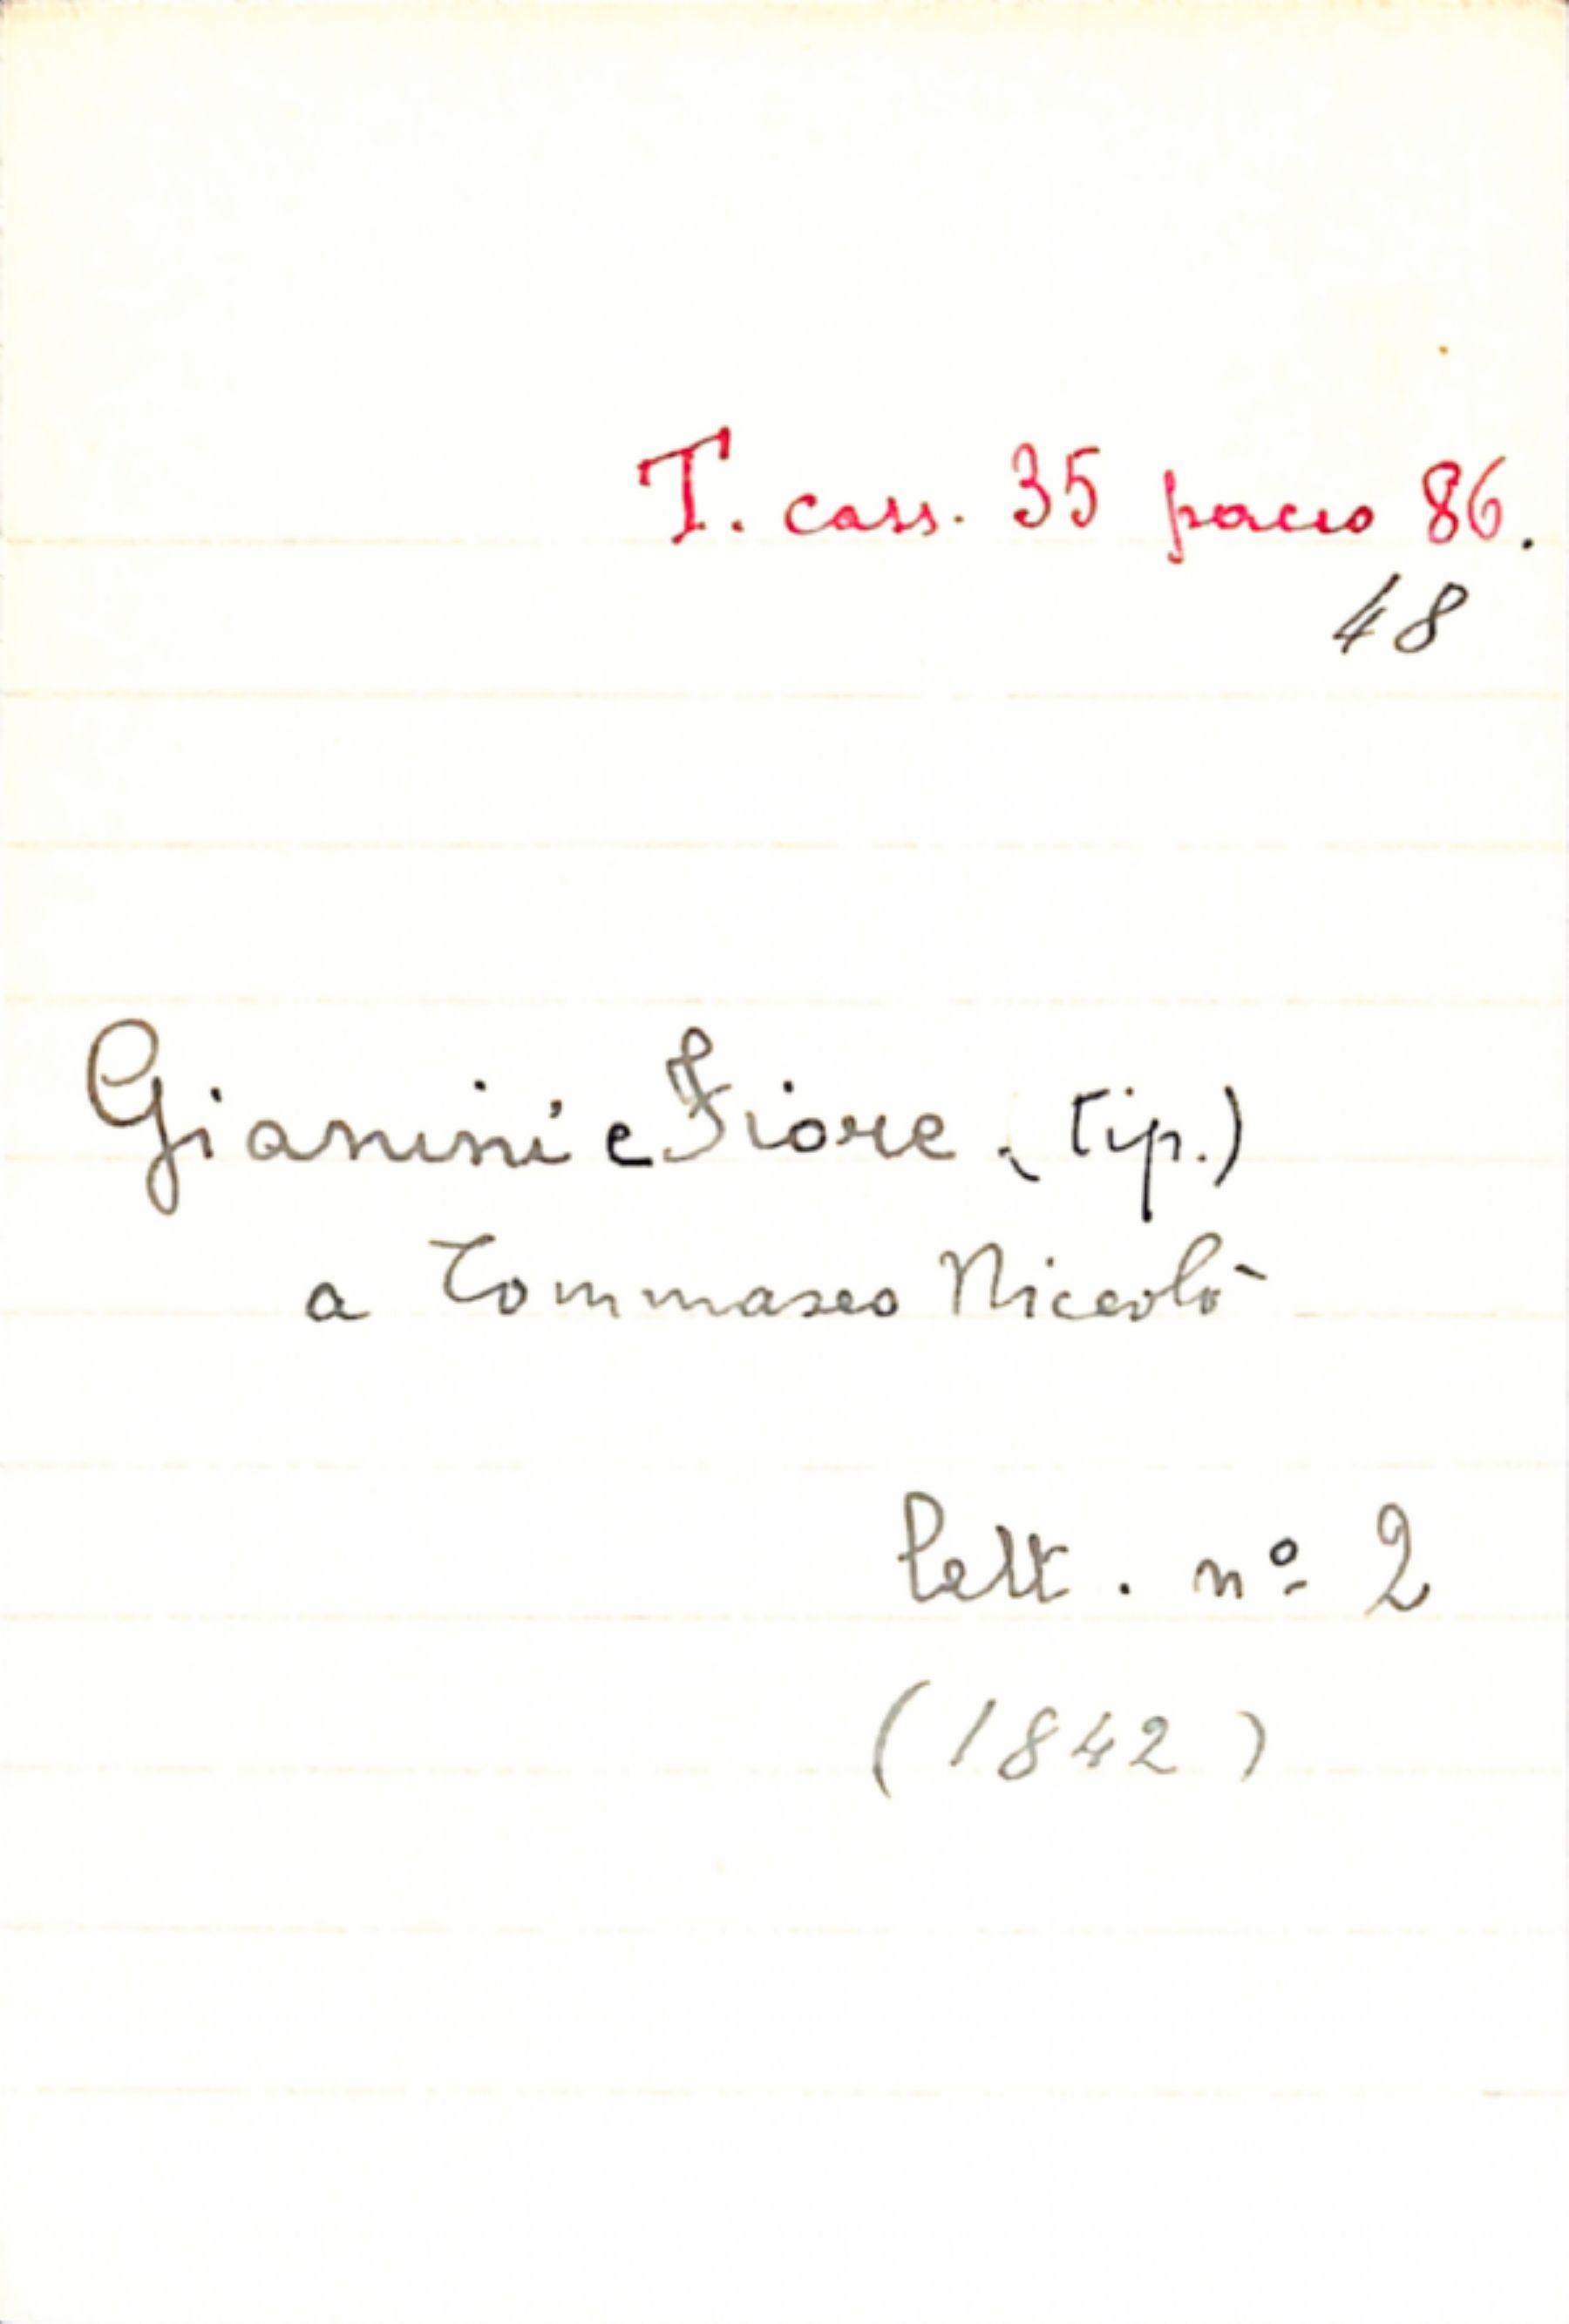 T. cass. 35 pacco 86.
48
Gianini e Fiore. (tip.)
a Tommaseo Niccolò
lett. nº 2
(1842)